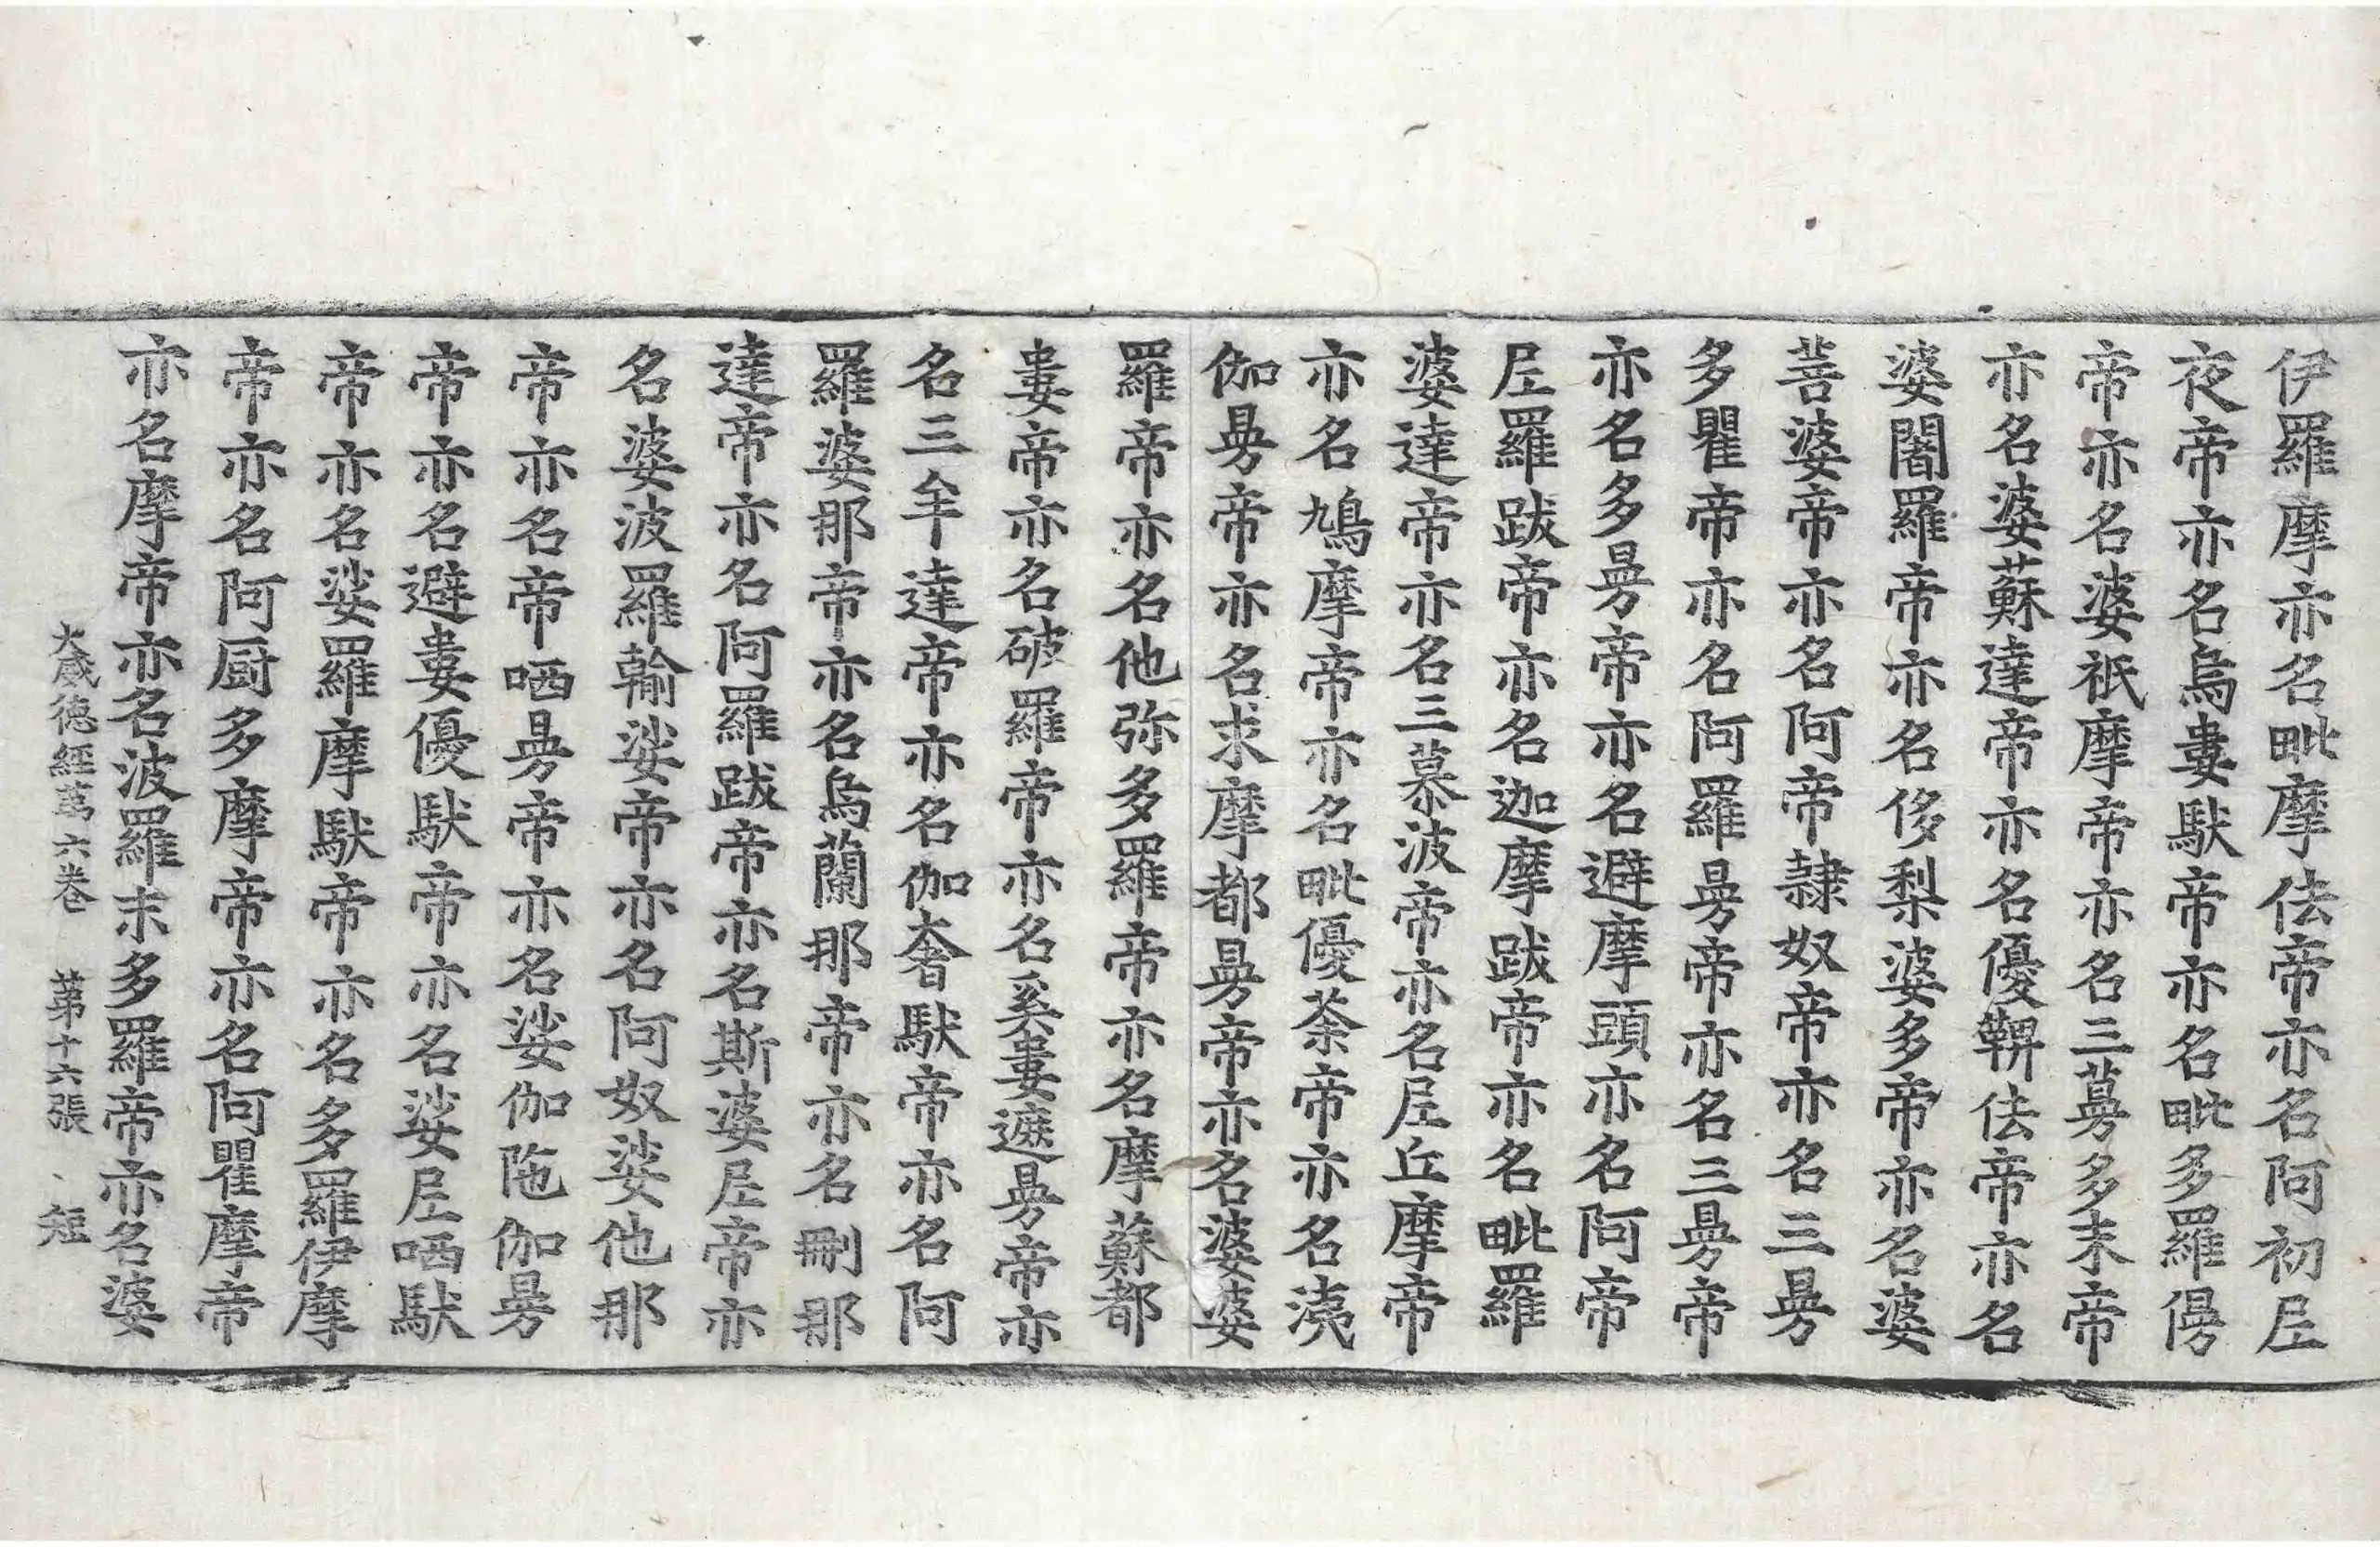 伊羅摩亦名毗摩佉帝亦名阿初𡰱
夜帝亦名烏婁馱帝亦名毗多羅㑥
帝亦名婆祇摩帝亦名三摹多末帝
亦名婆蘇達帝亦名優鞞佉帝亦名
婆闍羅帝亦名侈梨婆多帝亦名婆
菩婆帝亦名阿帝隸奴帝亦名三㝵
多瞿帝亦名阿羅㝵帝亦名三㝵帝
亦名多㝵帝亦名避摩頭亦名阿帝
𡰱羅跋帝亦名迦摩跋帝亦名毗羅
婆達帝亦名三慕波帝亦名𡰱丘摩帝
亦名鳩摩帝亦名毗優荼帝亦名洟
伽㝵帝亦名求摩都㝵帝亦名婆婆
羅帝亦名他弥多羅帝亦名摩蘇都
婁帝亦名破羅帝亦名奚婁遮㝵帝亦
名三牟達帝亦名伽奢馱帝亦名阿
羅婆那帝亦名烏蘭那帝亦名刪那
達帝亦名阿羅跋帝亦名斯婆𡰱帝亦
名婆波羅輸娑帝亦名阿奴娑他那
帝亦名帝哂㝵帝亦名娑伽陁伽㝵
帝亦名避婁優馱帝亦名娑𡰱哂馱
帝亦名娑羅摩馱帝亦名多羅伊摩
帝亦名阿厨多摩帝亦名阿瞿摩帝
亦名摩帝亦名波羅末多羅帝亦名婆
大威德經第六卷　第十六張　短